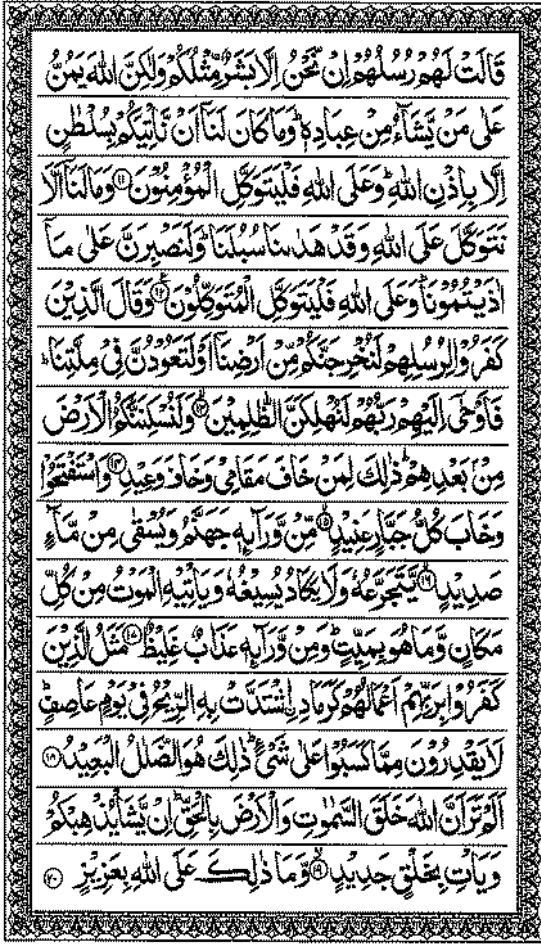 قَالَتْ لَهُمْ رُسُلُهُمْ اِنْ نَّحْنُ اِلَّا بَشَرٌ مِّثْلُكُمْ وَلٰكِنَّ اللّٰهَ يَمُنُّ
عَلٰى مَنْ يَّشَآءُ مِنْ عِبَادِهٖ ؕ وَمَا كَانَ لَنَآ اَنْ نَّاْتِيَكُمْ بِسُلْطٰنٍ
اِلَّا بِاِذْنِ اللّٰهِ ؕ وَعَلَى اللّٰهِ فَلْيَتَوَكَّلِ الْمُؤْمِنُوْنَ ۝۱۱ وَمَا لَنَآ اَلَّا
نَتَوَكَّلَ عَلَى اللّٰهِ وَقَدْ هَدٰىنَا سُبُلَنَا ؕ وَلَنَصْبِرَنَّ عَلٰى مَآ
اٰذَيْتُمُوْنَا ؕ وَعَلَى اللّٰهِ فَلْيَتَوَكَّلِ الْمُتَوَكِّلُوْنَ ۝۱۲ وَقَالَ الَّذِيْنَ
كَفَرُوْا لِرُسُلِهِمْ لَنُخْرِجَنَّكُمْ مِّنْ اَرْضِنَآ اَوْ لَتَعُوْدُنَّ فِيْ مِلَّتِنَا ؕ
فَاَوْحٰٓى اِلَيْهِمْ رَبُّهُمْ لَنُهْلِكَنَّ الظّٰلِمِيْنَ ۝۱۳ وَلَنُسْكِنَنَّكُمُ الْاَرْضَ
مِنْ بَعْدِهِمْ ؕ ذٰلِكَ لِمَنْ خَافَ مَقَامِيْ وَخَافَ وَعِيْدِ ۝۱۴ وَاسْتَفْتَحُوْا
وَخَابَ كُلُّ جَبَّارٍ عَنِيْدٍ ۝۱۵ مِّنْ وَّرَآئِهٖ جَهَنَّمُ وَيُسْقٰى مِنْ مَّآءٍ
صَدِيْدٍ ۝۱۶ يَّتَجَرَّعُهٗ وَلَا يَكَادُ يُسِيْغُهٗ وَيَاْتِيْهِ الْمَوْتُ مِنْ كُلِّ
مَكَانٍ وَّمَا هُوَ بِمَيِّتٍ ؕ وَمِنْ وَّرَآئِهٖ عَذَابٌ غَلِيْظٌ ۝۱۷ مَثَلُ الَّذِيْنَ
كَفَرُوْا بِرَبِّهِمْ اَعْمَالُهُمْ كَرَمَادِ ِۨاشْتَدَّتْ بِهِ الرِّيْحُ فِيْ يَوْمٍ عَاصِفٍ ؕ
لَا يَقْدِرُوْنَ مِمَّا كَسَبُوْا عَلٰى شَيْءٍ ؕ ذٰلِكَ هُوَ الضَّلٰلُ الْبَعِيْدُ ۝۱۸
اَلَمْ تَرَ اَنَّ اللّٰهَ خَلَقَ السَّمٰوٰتِ وَالْاَرْضَ بِالْحَقِّ ؕ اِنْ يَّشَاْ يُذْهِبْكُمْ
وَيَاْتِ بِخَلْقٍ جَدِيْدٍ ۝۱۹ وَّمَا ذٰلِكَ عَلَى اللّٰهِ بِعَزِيْزٍ ۝۲۰